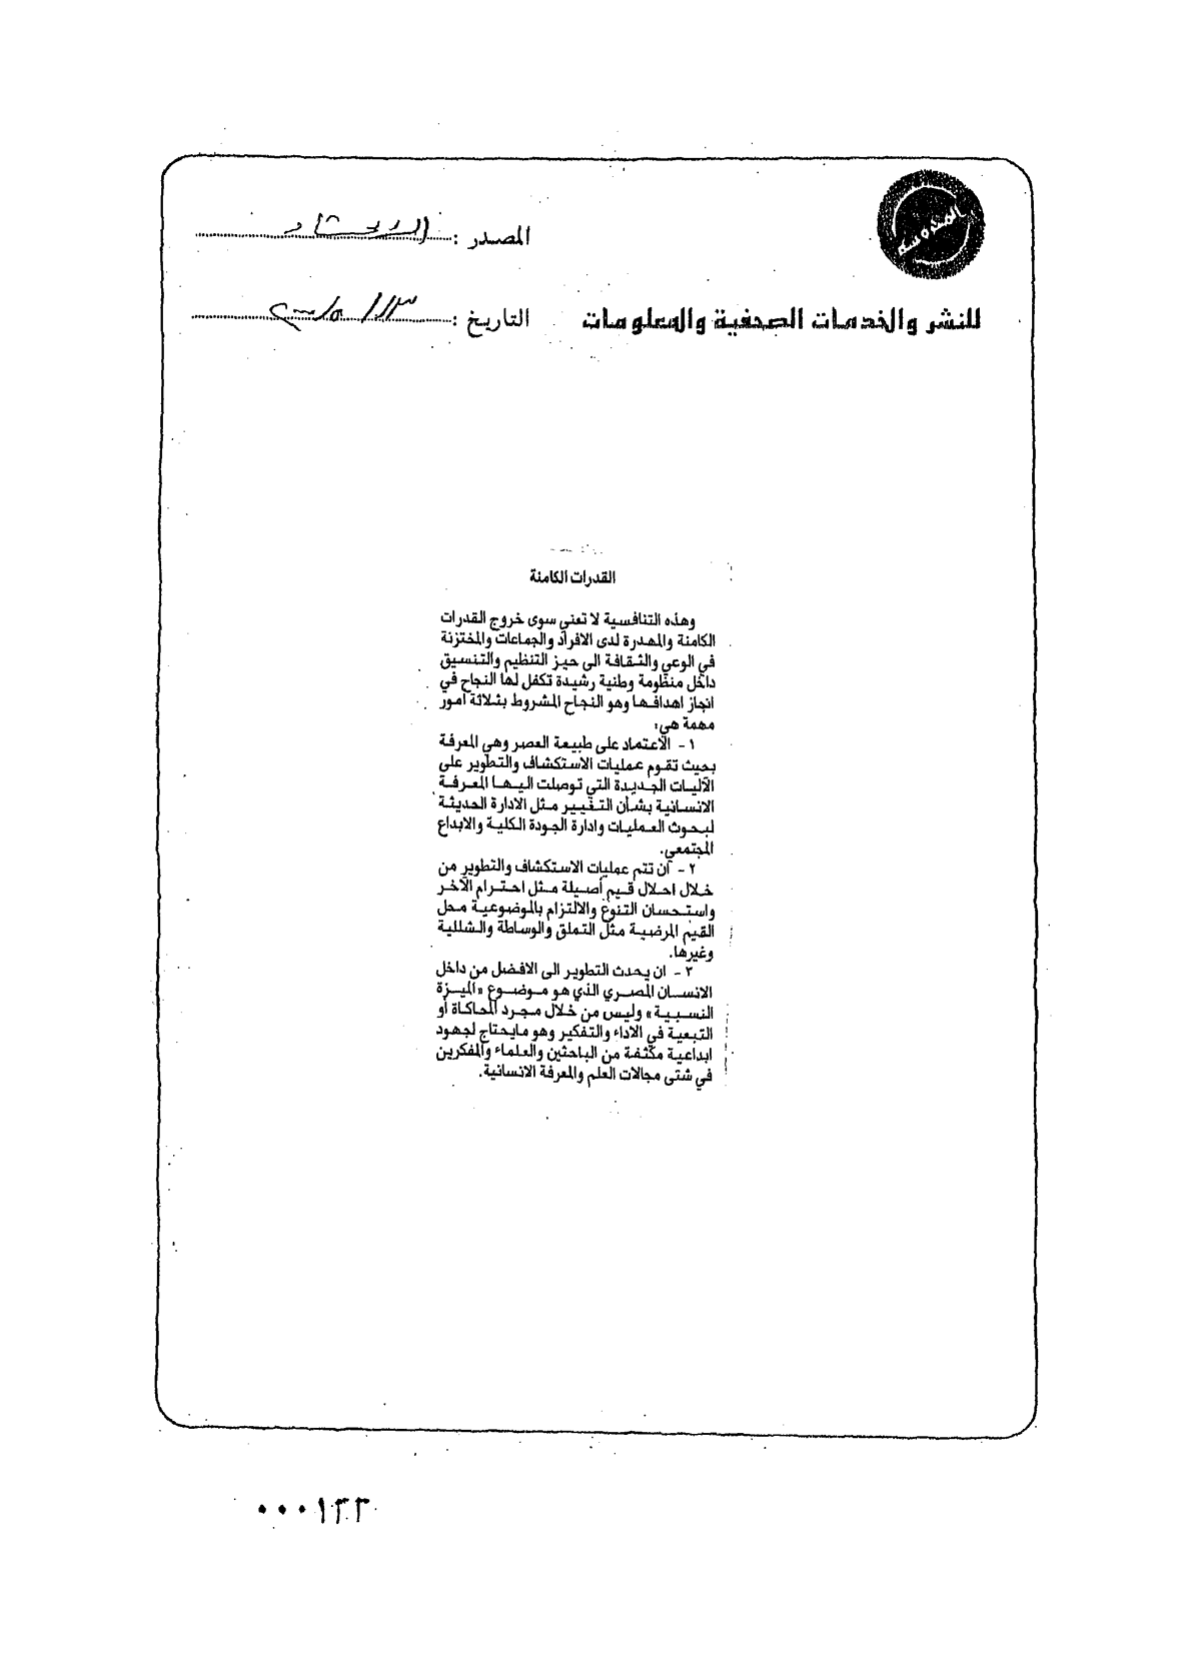 المصدر :
المحروسة
للنشر والخدمات الصحفية والمعلومات
التاريخ :
القدرات الكامنة
وهذه التنافسية لا تعني سوى خروج القدرات
الكامنة والمهدرة لدى الافراد والجماعات والمختزنة
في الوعي والثقافة الى حيز التنظيم والتنسيق
داخل منظومة وطنية رشيدة تكفل لها النجاح في
انجاز اهدافها وهو النجاح المشروط بثلاثة امور
مهمة هي:
١ - الاعتماد على طبيعة العصر وهي المعرفة
بحيث تقوم عمليات الاستكشاف والتطوير على
الآليات الجديدة التي توصلت اليها المعرفة
الانسانية بشأن التغيير مثل الادارة الحديثة
لبحوث العمليات وادارة الجودة الكلية والابداع
المجتمعي.
٢ - أن تتم عمليات الاستكشاف والتطوير من
خلال احلال قيم أصيلة مثل احترام الآخر
واستحسان التنوع والالتزام بالموضوعية محل
القيم المرضية مثل التملق والوساطة والشللية
وغيرها.
٣ - ان يحدث التطوير الى الافضل من داخل
الانسان المصري الذي هو موضوع «الميزة
النسبية» وليس من خلال مجرد المحاكاة أو
التبعية في الاداء والتفكير وهو مايحتاج لجهود
ابداعية مكثفة من الباحثين والعلماء والمفكرين
في شتى مجالات العلم والمعرفة الانسانية.